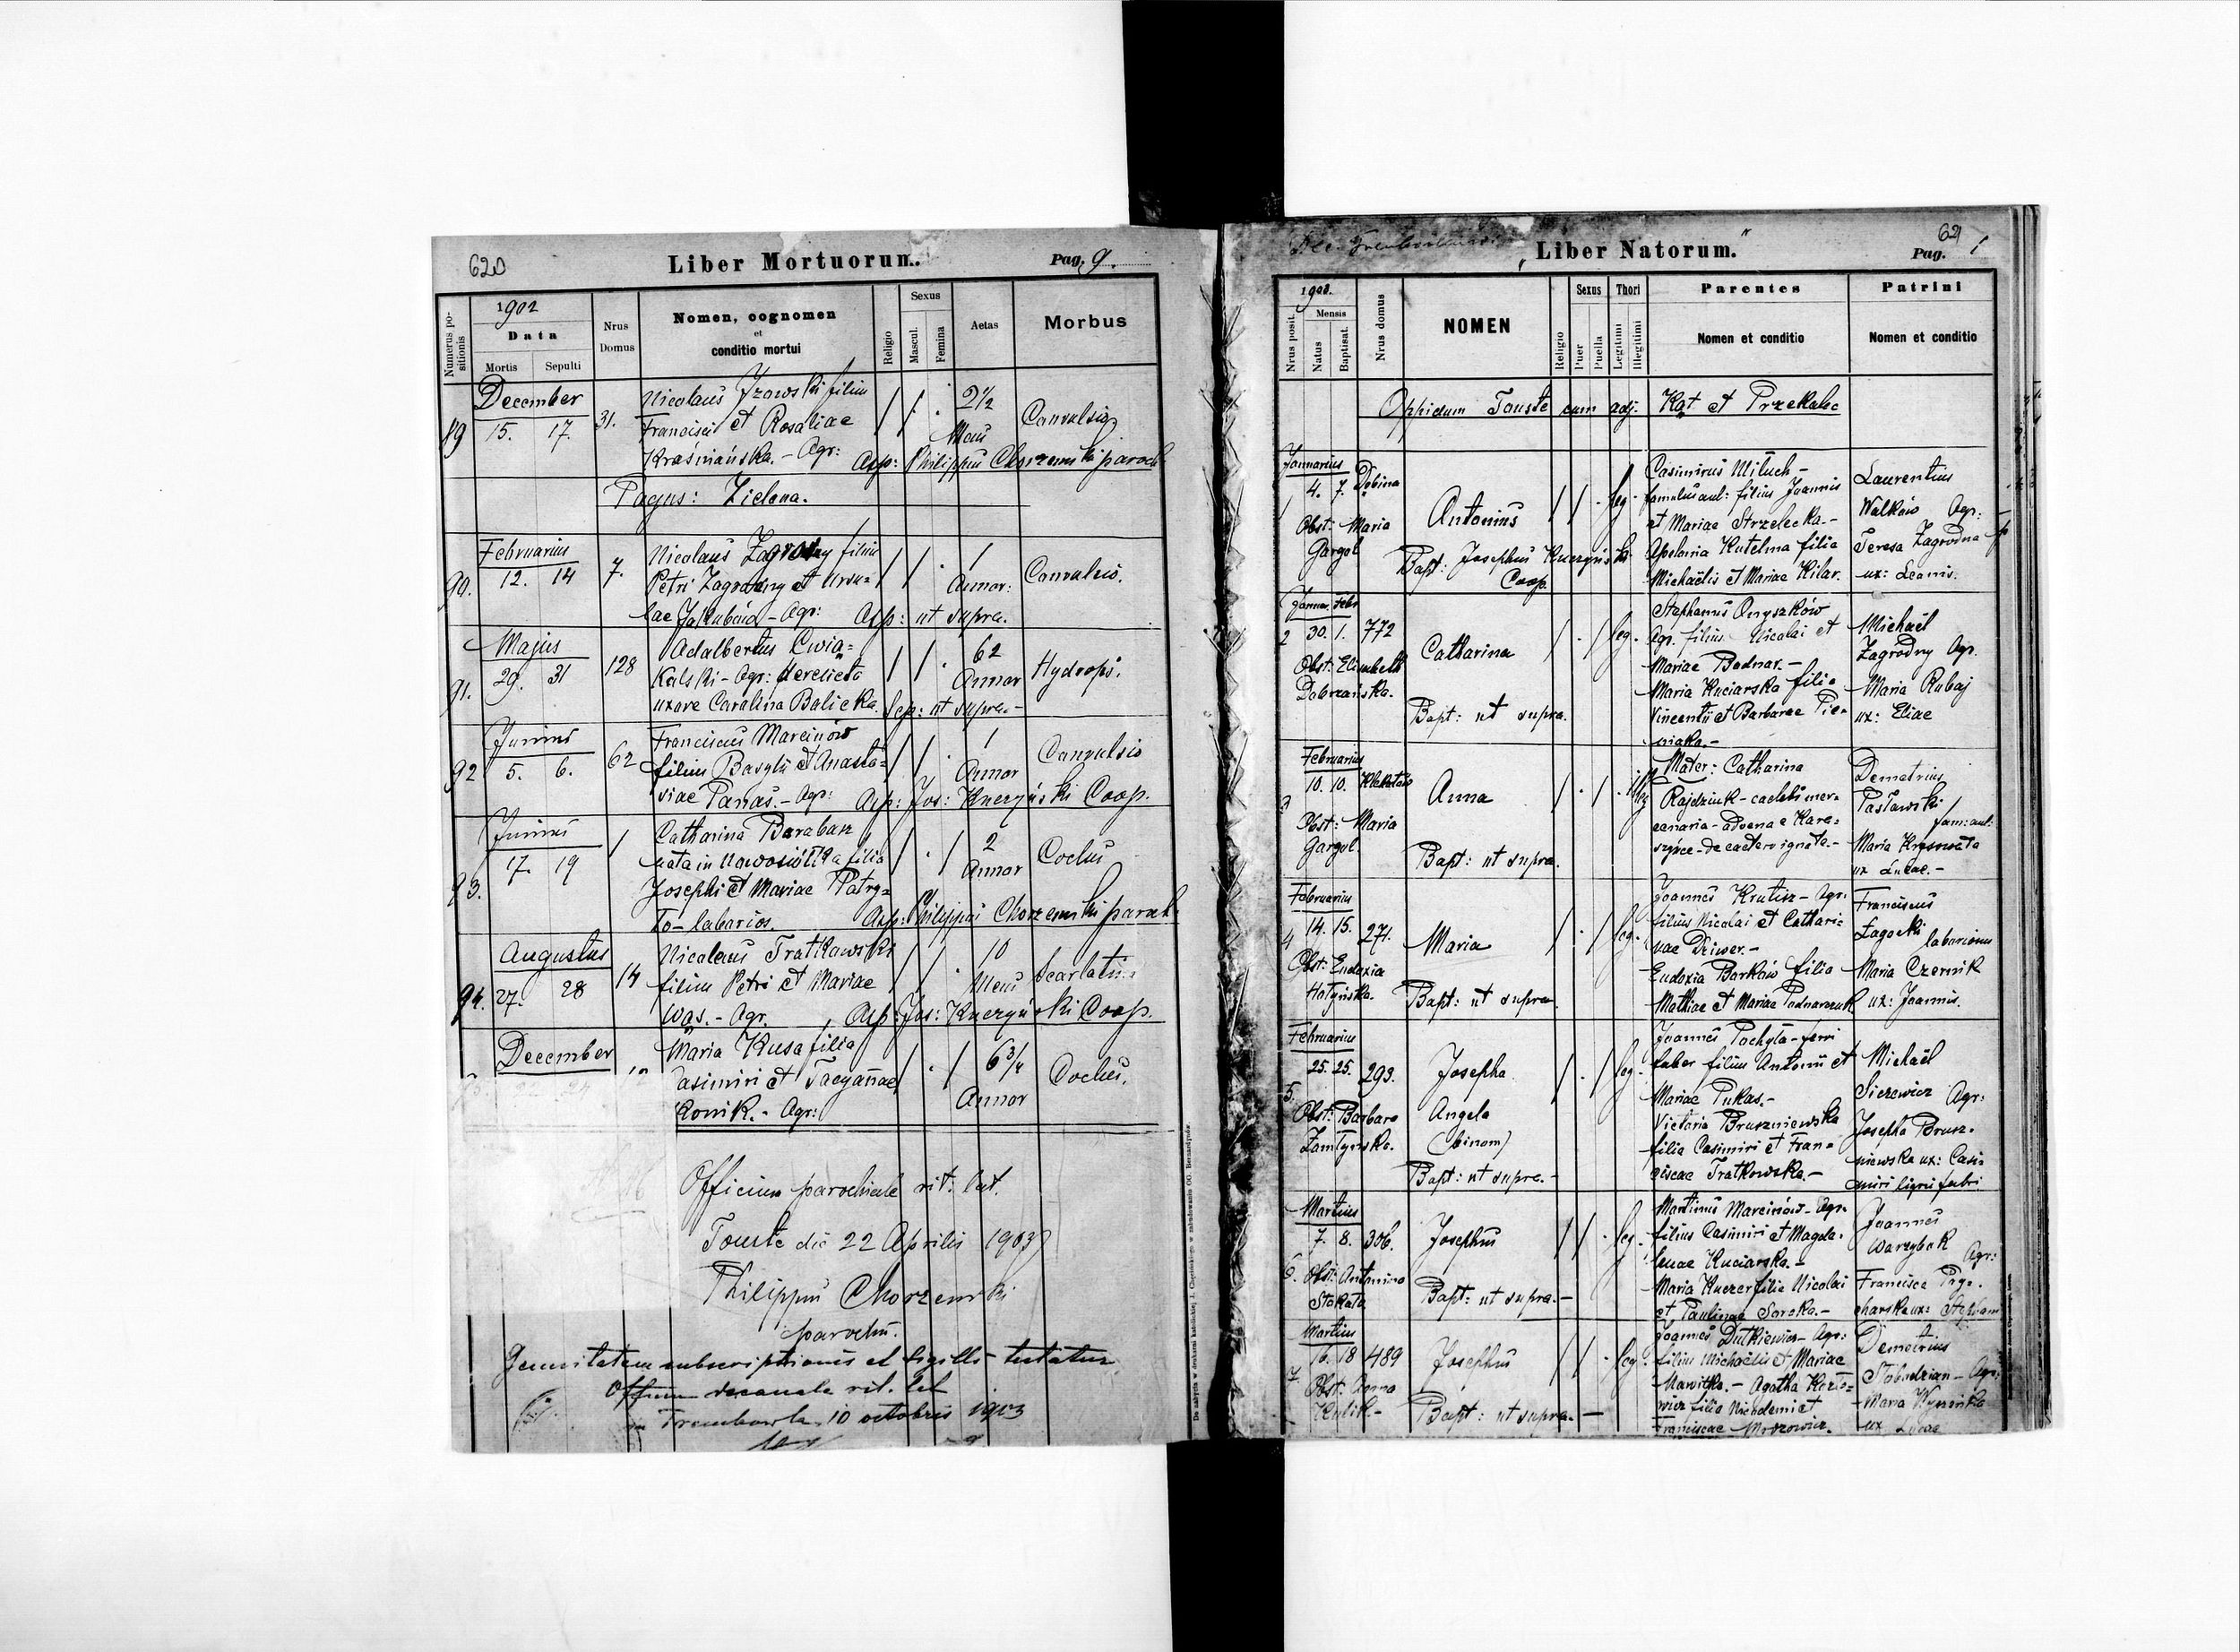 620
Liber Mortuorum.
Pag. 9.
Numerus positionis
1902
Data
Mortis
Sepulti
Nrus Domus
Nomen, cognomen
et
conditio mortui
Religio
Sexus
Mascul.
Femina
Aetas
Morbus
December
89 15. 17. 31.
Nicolaus Jzowski filius
Francisci et Rosaliae
Kraśniańska. - Agr:
2 1/2
Mens
Convulsio
Asp: Philippus Chorzemski paroch
Pagus: Zielona.
Februarius
90. 12. 14 7.
Nicolaus Zagrodny filius
Petri Zagrodny et Ursu=
lae Jakubów - Agr:
1
Annor:
Convulsio.
Asp: ut supra.
Majus
91. 29. 31 128
Adalbertus Cwią=
kalski - Agr: derelicta
uxore Carolina Balicka.
62
Annor
Hydrops.
Sep: ut supra. -
Junius
92 5. 6. 62
Franciscus Marcinów
filius Basylii et Anasta=
siae Panas. - Agr:
1
Annor
Convulsio
Asp: Jos: Knerzyński Coop.
Junius
93. 17. 19 1
Catharina Baraban
nata in Nowosiółka filia
Josephi et Mariae Patry=
to - labarios.
2
Annor
Coclus
Asp: Philippus Chorzemski paroch.
Augustus
94. 27. 28 14
Nicolaus Tratkowski
filius Petri et Mariae
Wąs. - Agr.
10
Mens
Scarlatina
Asp: Jos: Knerzyński Coop.
December
22 24
Maria Kusa filia
Casimiri et Tacyannae
Konik. - Agr:
6 3/4
Annor
Coclus.
Officium parochiale rit. lat.
Touste die 22 Aprilis 1903
Philippus Chorzemski
parochus.
Genuitatem subscriptionis et sigilli testatur
Offium decanale rit. lat
in Trembowla 10 octobris 1903
Do nabycia w drukarni katolickiej J. Chęcińskiego w zabudowaniu OO. Bernardynów.
Liber Natorum.
621
Pag. 1
Nrus posit.
1903.
Mensis
Natus
Baptisat.
Nrus domus
NOMEN
Religio
Sexus
Puer
Puella
Thori
Legitimi
Illegitimi
Parentes
Nomen et conditio
Patrini
Nomen et conditio
Oppidum Touste cum adj. Kąt et Przekalec
Januarius
1 4. 7. Dębina
Obst: Maria
Gargol
Antonius
Bapt: Josephus Knerzyński
Coop.
leg.
Casimirus Mituch -
famulus aul: filius Joannis
et Mariae Strzelecka. -
Apolonia Kutelma filia
Michaëlis et Mariae Kilar.
Laurentius
Walków Agr:
Teresa Zagrodna
ux: Leonis.
Januar. Febr
2 30. 1. 772
Obst: Elisabeth
Dobrzańska.
Catharina
Bapt: ut supra.
leg.
Stephanus Onyszków
Agr. filius Nicolai et
Mariae Bodnar. -
Maria Kuciarska filia
Vincentii et Barbarae Pie=
niaka. -
Michaël
Zagrodny Agr.
Maria Rubaj
ux: Eliae
Februarius
3 10. 10.
Obst: Maria
Gargol.
Anna
Bapt: ut supra.
illeg
Mater: Catharina
Rajdziuk - caelebs mer=
cenaria - advena e Kara=
szyńce - de caetero ignota. -
Demetrius
Pasławski
fam: aul:
Maria Krysowata
ux Lucae. -
Februarius
4 14. 15. 271.
Obst: Eudoxia
Hotyńska.
Maria
Bapt: ut supra
leg.
Joannes Krutisz - Agr.
filius Nicolai et Cathari=
nae Dziwer. -
Eudoxia Borków filia
Mathiae et Mariae Podnarczuk
Franciscus
Łagocki
labarious
Maria Czernik
ux: Joannis.
Februarius
5. 25. 25. 293.
Obst: Barbara
Zamłyńska.
Josepha
Angela
(binom)
Bapt: ut supra. -
leg.
Joannes Pochyła - ferri
faber filius Antonii et
Mariae Pukas. -
Victoria Bruszniewska
filia Casimiri et Fran=
ciscae Tratkowska. -
Michaël
Sierewicz Agr:
Josepha Brusz=
niewska ux: Casi=
miri ligni fabri
Martius
6. 7. 8. 306.
Obst: Antonina
Stokata
Josephus
Bapt: ut supra. -
leg.
Martinus Marcinów - Agr.
filius Casimiri et Magda=
lenae Kuciarska. -
Maria Knezer filia Nicolai
et Paulinae Soroka. -
Joannes
Warzybok
Agr:
Francisca Pry=
charska ux: Stephani
Martius
7. 16. 18 489
Obst: Anna
Kulik. -
Josephus
Bapt: ut supra. -
leg.
Joannes Dutkiewicz - Agr:
filius Michaëlis et Mariae
Nawitka. - Agatha
filia Nicodemi et
Franciscae Mrozowicz.
Demetrius
Słobodzian - Agr:
Maria
ux Lucae